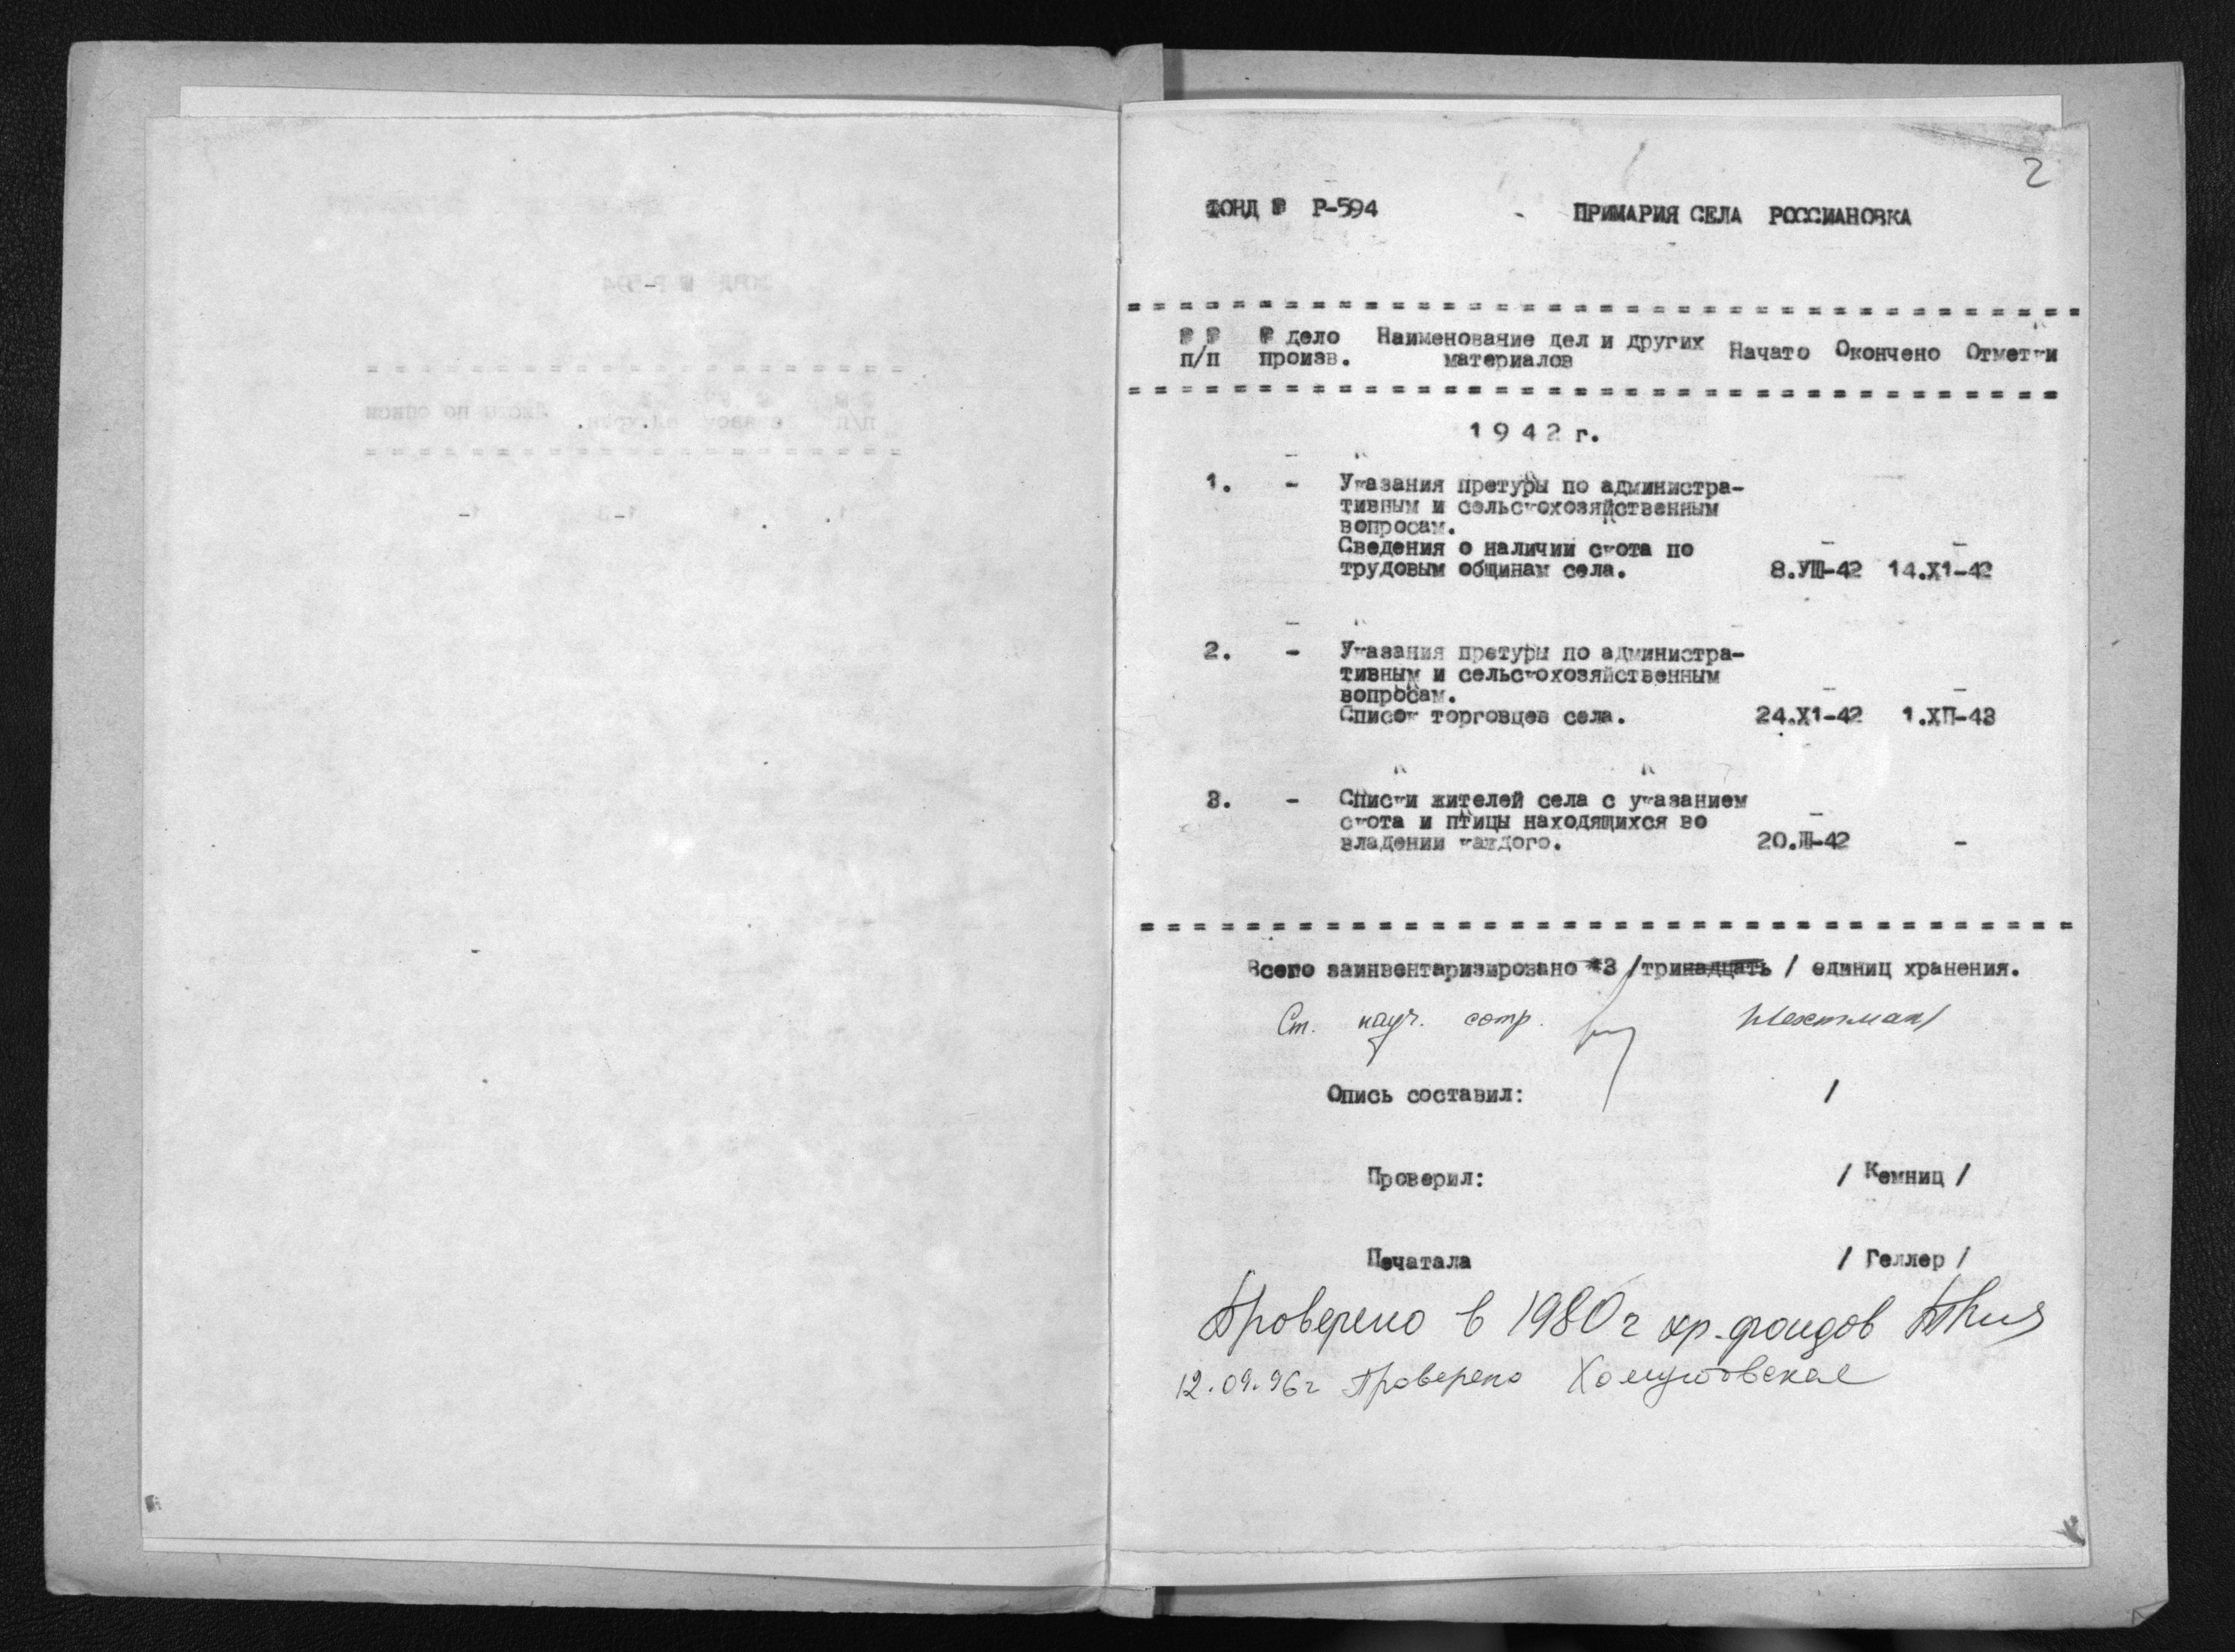 2
ФОНД № Р-594 ПРИМАРИЯ СЕЛА РОССИАНОВКА
= = = = = = = = = = = = = = = = = = = = = = = = = = = = = = = = = = = =
№ № № дело Наименование дел и других Начато Окончено Отметки
п/п произв. материалов
= = = = = = = = = = = = = = = = = = = = = = = = = = = = = = = = = = = =
1 9 4 2 г.
1. - Указания претуры по администра-
тивным и сельскохозяйственным
вопросам.
Сведения о наличии скота по
трудовым общинам села. 8.УШ-42 14.X1-42
2. - Указания претуры по администра-
тивным и сельскохозяйственным
вопросам.
Список торговцев села. 24.X1-42 1.ХП-43
3. - Списки жителей села с указанием
скота и птицы находящихся во
владении каждого. 20.Ш-42 -
= = = = = = = = = = = = = = = = = = = = = = = = = = = = = = = = = = = =
Всего заинвентаризировано 13 /тринадцать / единиц хранения.
Ст. науч. сотр. Шехтман/
Опись составил: /
Проверил: / Кемниц /
Печатала / Геллер /
Проверено в 1980г хр. фондов
12.09.96г Проверено Хомутовская